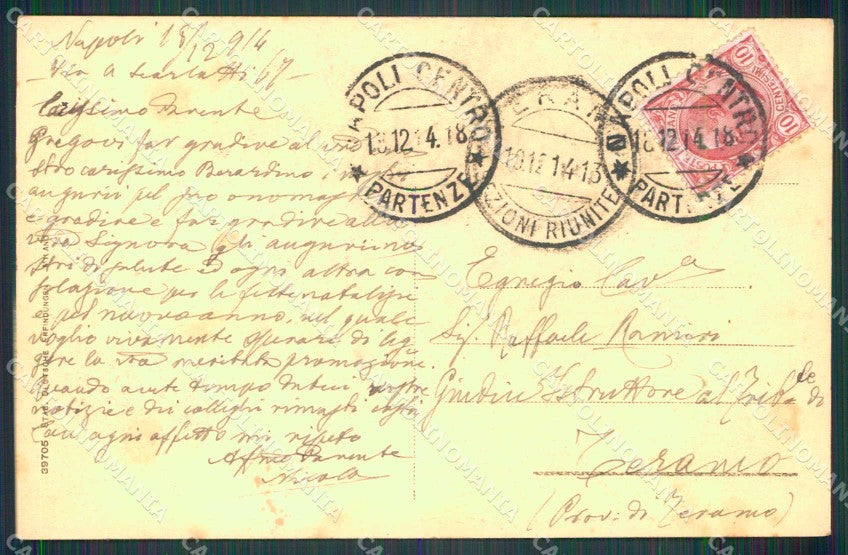 Napoli 18/12 914
Via A Scarlatti 67
Carissimo Parente
Pregovi far gradire al vo
stro carissimo Berardino i
augurii pel suo onomastico
e gradire e far gradire alla
vra Signora gli augurii no
stri di salute e ogni altra con
solazione per le feste natalizie
e pel nuovo anno, nel quale
voglio vivamente sperare di leg
gere la vra meritata promozione.
Quando avete tempo dateci vostre
notizie e dei colleghi rimasti costà
Con ogni affetto mi ripeto
Affmo Parente
Nicola
NAPOLI CENTRO
18.12.14.18
PARTENZE
TERAMO
19.12.14-13
SEZIONI RIUNITE
NAPOLI CENTRO
18.12.14.18
PARTENZE
10 CENTESIMI 10
Egregio Cav.
Sig. Raffaele Ranieri
Giudice Istruttore al Trib.le di
Teramo
(Prov: di Teramo)
39705
CARTOLINOMANIA